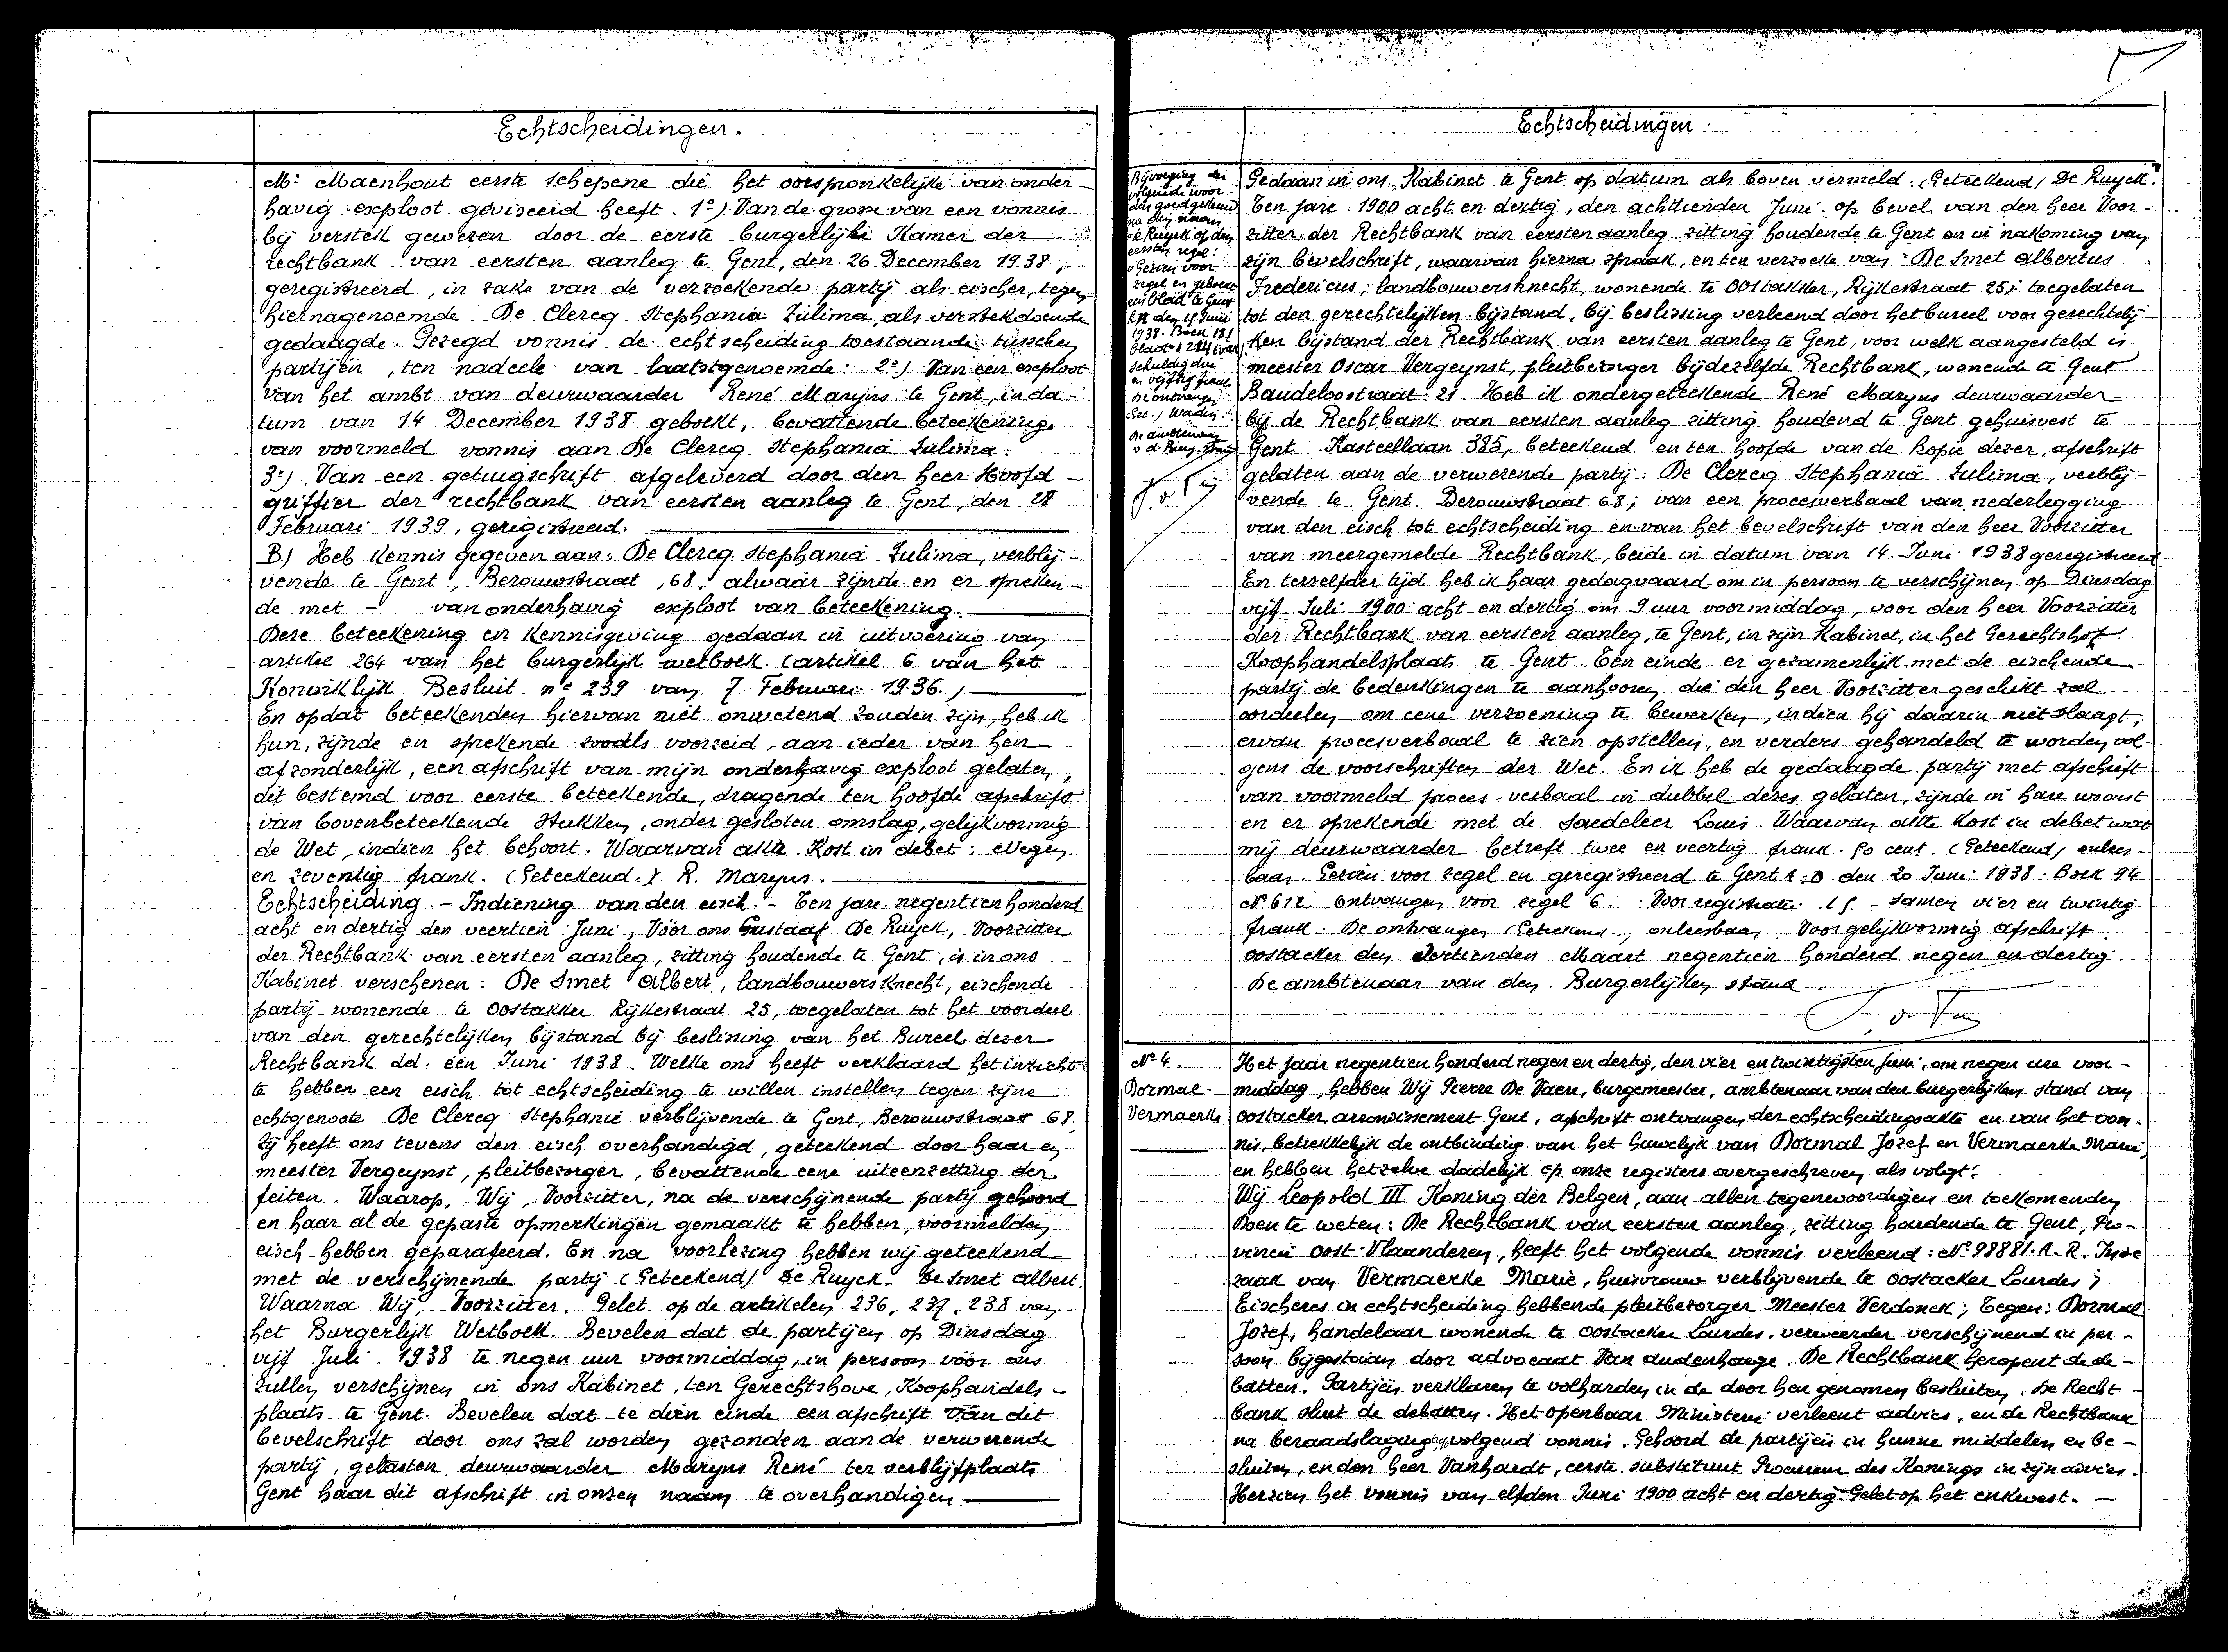 Echtscheidingen.
Mr. Maenhout eerste schepene die het oorspronkelijke van onder-
havig exploot geviseerd heeft. 1º) Van de grosse van een vonnis
bij verstek gewezen door de eerste burgerlijke Kamer der
rechtbank van eersten aanleg te Gent, den 26 December 1938,
geregistreerd, in zake van de verzoekende partij als eischer, tegen
hiernagenoemde De Clercq Stephania Zulima, als verstekdoende
gedaagde. Gezegd vonnis de echtscheiding toestaande tusschen
partijen, ten nadeele van laatstgenoemde: 2º) Van een exploot
van het ambt van deurwaarder René Maryns te Gent, in da-
tum van 14 December 1938 geboekt, bevattende beteekening
van voormeld vonnis aan De Clercq Stephania Zulima.
3º) Van een getuigschrift afgeleverd door den heer Hoofd-
griffier der rechtbank van eersten aanleg te Gent, den 28
Februari 1939, geregistreerd.
B) Heb Kennis gegeven aan: De Clercq Stephania Zulima, verblij-
vende te Gent, Berouwstraat, 68, alwaar zijnde en er spreken-
de met - van onderhavig exploot van beteekening.
Deze beteekening en Kennisgeving gedaan in uitvoering van
artikel 264 van het burgerlijk wetboek (artikel 6 van het
Koninklijk Besluit nº 239 van 7 Februari 1936.)
En opdat beteekenden hiervan niet onwetend zouden zijn, heb ik
hun, zijnde en sprekende zooals voorzeid, aan ieder van hen
afzonderlijk, een afschrift van mijn onderhavig exploot gelaten,
dit bestemd voor eerste beteekende, dragende ten hoofde afschrift
van bovenbeteekende stukken, onder gesloten omslag, gelijkvormig
de Wet, indien het behoort. Waarvan akte. Kost in debet: Negen
en zeventig frank. (Geteekend.) R. Maryns.
Echtscheiding. - Indiening van den eisch. - Ten jare negentien honderd
acht en dertig den veertien Juni, Vóór ons Gustaaf De Ruyck, Voorzitter
der Rechtbank van eersten aanleg, zitting houdende te Gent, is in ons
Kabinet verschenen: De Smet Albert, landbouwersknecht, eischende
partij wonende te Oostakker Rijkestraat 25, toegelaten tot het voordeel
van den gerechtelijken bijstand bij beslissing van het Bureel dezer
Rechtbank dd. een Juni 1938. Welke ons heeft verklaard het inzicht
te hebben een eisch tot echtscheiding te willen instellen tegen zijne
echtgenoote De Clercq Stephanie verblijvende te Gent, Berouwstraat 68.
Zij heeft ons tevens den eisch overhandigd, geteekend door haar en
meester Vergeynst, pleitbezorger, bevattende eene uiteenzetting der
feiten. Waarop, Wij, Voorzitter, na de verschijnende partij gehoord
en haar al de gepaste opmerkingen gemaakt te hebben, voormelden
eisch hebben geparafeerd. En na voorlezing hebben wij geteekend
met de verschijnende partij (Geteekend) De Ruyck. De Smet Albert.
Waarna Wij, Voorzitter. Gelet op de artikelen 236, 237, 238 van
het Burgerlijk Wetboek. Bevelen dat de partijen op Dinsdag
vijf Juli 1938 te negen uur voormiddag, in persoon vóór ons
zullen verschijnen in ons Kabinet, ten Gerechtshove, Koophandels-
plaats te Gent. Bevelen dat te dien einde een afschrift van dit
bevelschrift door ons zal worden gezonden aan de verwerende
partij, gelasten deurwaarder Maryns René ter verblijfplaats
Gent haar dit afschrift in onzen naam te overhandigen.
Echtscheidingen.
Bijvoeging der
volgende woor-
den goedgekeurd
na den naam
de Ruyck op den
eersten regel:
Gezien voor
zegel en geboekt
een blad te Gent
den 15 Juni
1938. Boek 181
blad
schuldig drie
en vijftig frank
De ontvanger
Get.) Wadin
De ambtenaar
v. d. Burg. Stand
Gedaan in ons Kabinet te Gent op datum als boven vermeld. (Geteekend) De Ruyck.
Ten jare 1900 acht en dertig, den achttienden Juni op bevel van den heer Voor-
zitter der Rechtbank van eersten aanleg zitting houdende te Gent en in nakoming van
zijn bevelschrift, waarvan hierna spraak, en ten verzoeke van De Smet Albertus
Fredericus, landbouwersknecht, wonende te Oostakker, Rijkestraat 25, toegelaten
tot den gerechtelijken bijstand, bij beslissing verleend door het bureel voor gerechtelij-
ken bijstand der Rechtbank van eersten aanleg te Gent, voor welk aangesteld is
meester Oscar Vergeynst, pleitbezorger bij dezelfde Rechtbank, wonende te Gent
Baudeloostraat 21. Heb ik ondergeteekende René Maryns deurwaarder
bij de Rechtbank van eersten aanleg zitting houdend te Gent gehuisvest te
Gent Kasteellaan 385, beteekend en ten hoofde van de Kopie dezer, afschrift
gelaten aan de verwerende partij: De Clercq Stephania Zulima, verblij-
vende te Gent Berouwstraat 68; van een procesverbaal van nederlegging
van den eisch tot echtscheiding en van het bevelschrift van den heer Voorzitter
van meergemelde Rechtbank, beide in datum van 14 Juni 1938 geregistreerd.
En terzelfder tijd heb ik haar gedagvaard om in persoon te verschijnen op Dinsdag
vijf Juli 1900 acht en dertig om 9 uur voormiddag, voor den heer Voorzitter
der Rechtbank van eersten aanleg, te Gent, in zijn Kabinet, in het Gerechtshof
Koophandelsplaats te Gent. Ten einde er gezamenlijk met de eischende
partij de bedenkingen te aanhooren die den heer Voorzitter geschikt zal
oordeelen om eene verzoening te bewerken, indien hij daarin niet slaagt,
ervan procesverbaal te zien opstellen, en verders gehandeld te worden vol-
gens de voorschriften der Wet. En ik heb de gedaagde partij met afschrift
van voormeld proces-verbaal in dubbel dezes gelaten, zijnde in hare woonst
en er sprekende met de Saedeleer Louis. Waarvan akte Kost in debet wat
mij deurwaarder betreft twee en veertig frank 50 cent. (Geteekend) onlees-
baar. Gezien voor zegel en geregistreerd te Gent A.D. den 20 Juni 1938. Boek 94
Nº 612. Ontvangen voor zegel 6. Voor registratie 18 - samen vier en twintig
frank. De ontvanger (Geteekend), onleesbaar. Voor gelijkvormig afschrift.
Oostacker den dertienden Maart negentien honderd negen en dertig.
De ambtenaar van den Burgerlijken stand.
Nº 4.
Dormal-
Vermaerke
Het jaar negentien honderd negen en dertig, den vier en twintigsten Juni, om negen ure voor-
middag, hebben Wij Pierre De Vaere, burgemeester, ambtenaar van den burgerlijken stand van
Oostacker, arrondissement Gent, afschrift ontvangen der echtscheidingsakte en van het von-
nis, betrekkelijk de ontbinding van het huwelijk van Dormal Jozef en Vermaerke Marie,
en hebben hetzelve dadelijk op onze registers overgeschreven als volgt:
Wij Leopold III Koning der Belgen, aan allen tegenwoordigen en toekomenden
Doen te weten: De Rechtbank van eersten aanleg, zitting houdende te Gent, Pro-
vincie Oost-Vlaanderen, heeft het volgende vonnis verleend: Nº 98881. A. R. In de
zaak van Vermaerke Marie, huisvrouw verblijvende te Oostacker Lourdes;
Eischeres in echtscheiding hebbende pleitbezorger Meester Verdonck; Tegen: Dormal
Jozef, handelaar wonende te Oostacker Lourdes, verweerder verschijnend in per-
soon bijgestaan door advocaat Van Audenhaege. De Rechtbank heropent de de-
batten. Partijen verklaren te volharden in de door hen genomen besluiten. De Recht-
bank sluit de debatten. Het openbaar Ministerie verleent advies, en de Rechtbank
na beraadslaging volgend vonnis. Gehoord de partijen in hunne middelen en be-
sluiten, en den heer Vanhoudt, eerste substituut Procureur des Konings in zijn advies.
Herzien het vonnis van elfden Juni 1900 acht en dertig. Gelet op het enkwest. -